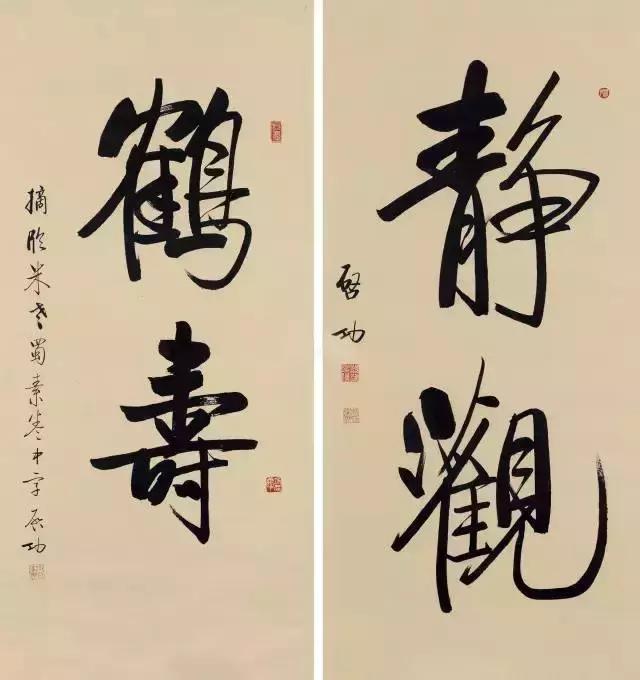 靜觀
啓功
鶴壽
摘臨米老蜀素卷中字啓功